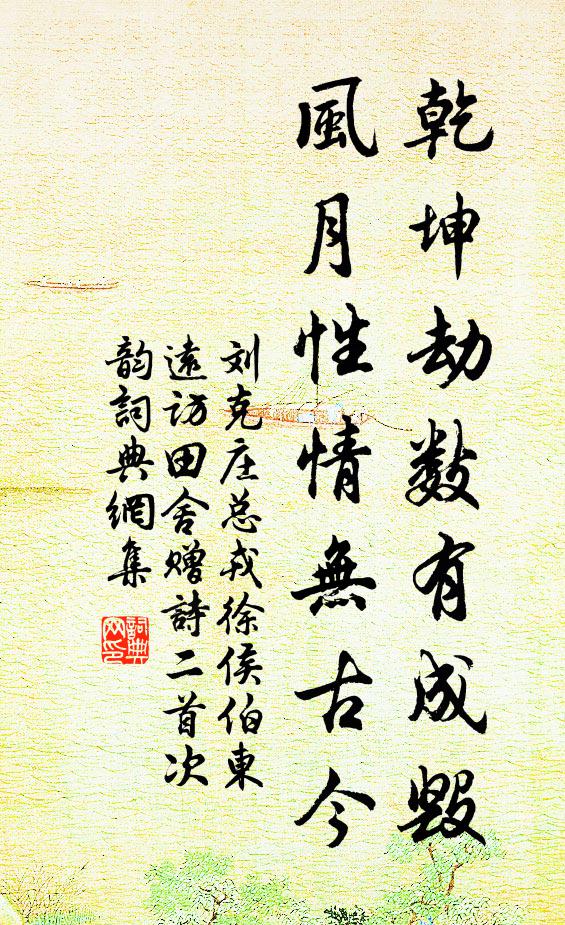 乾坤劫數有成毀
風月性情無古今
刘克庄总戎徐侯伯東
遠訪田舍赠詩二首次
韵詞典網集
詞典
网印